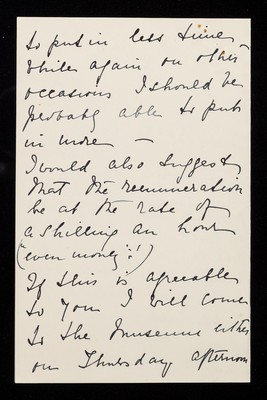 to put in less time
while again on other
occasions I should be
probably able to put
in more —
I would also suggest
that the remuneration
be at the rate of
a shilling an hour
(even money!)
If this is agreeable
to you I will come
to the Museum either
on Thursday afternoon